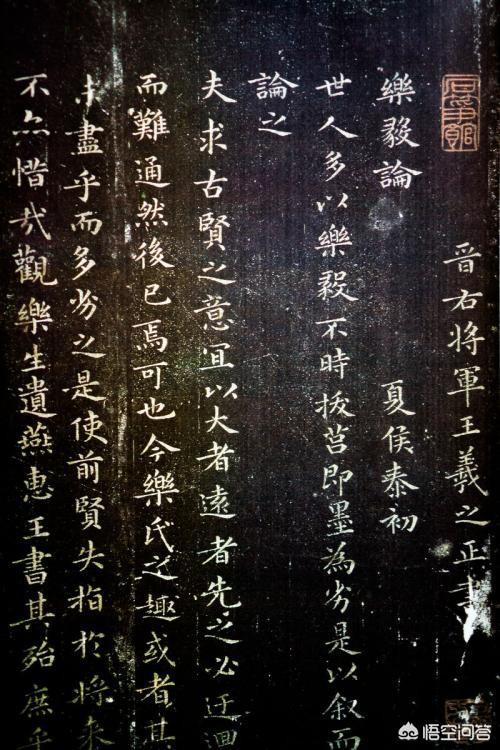 晉右将軍王羲之正書
樂毅論 夏侯泰初
世人多以樂毅不時拔莒即墨為劣是以叙而
論之
夫求古賢之意宜以大者遠者先之必迂迴
而難通然後已焉可也今樂氏之趣或者其
未盡乎而多劣之是使前賢失指於将來
不亦惜哉觀樂生遺燕惠王書其殆庶乎
悟空问答